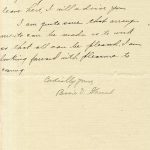 leave here, I will advise you
I am quite sure that arrange-
ments can be made so to work
so that all can be pleased. I am
looking forward with pleasure to
coming
Cordially yours,